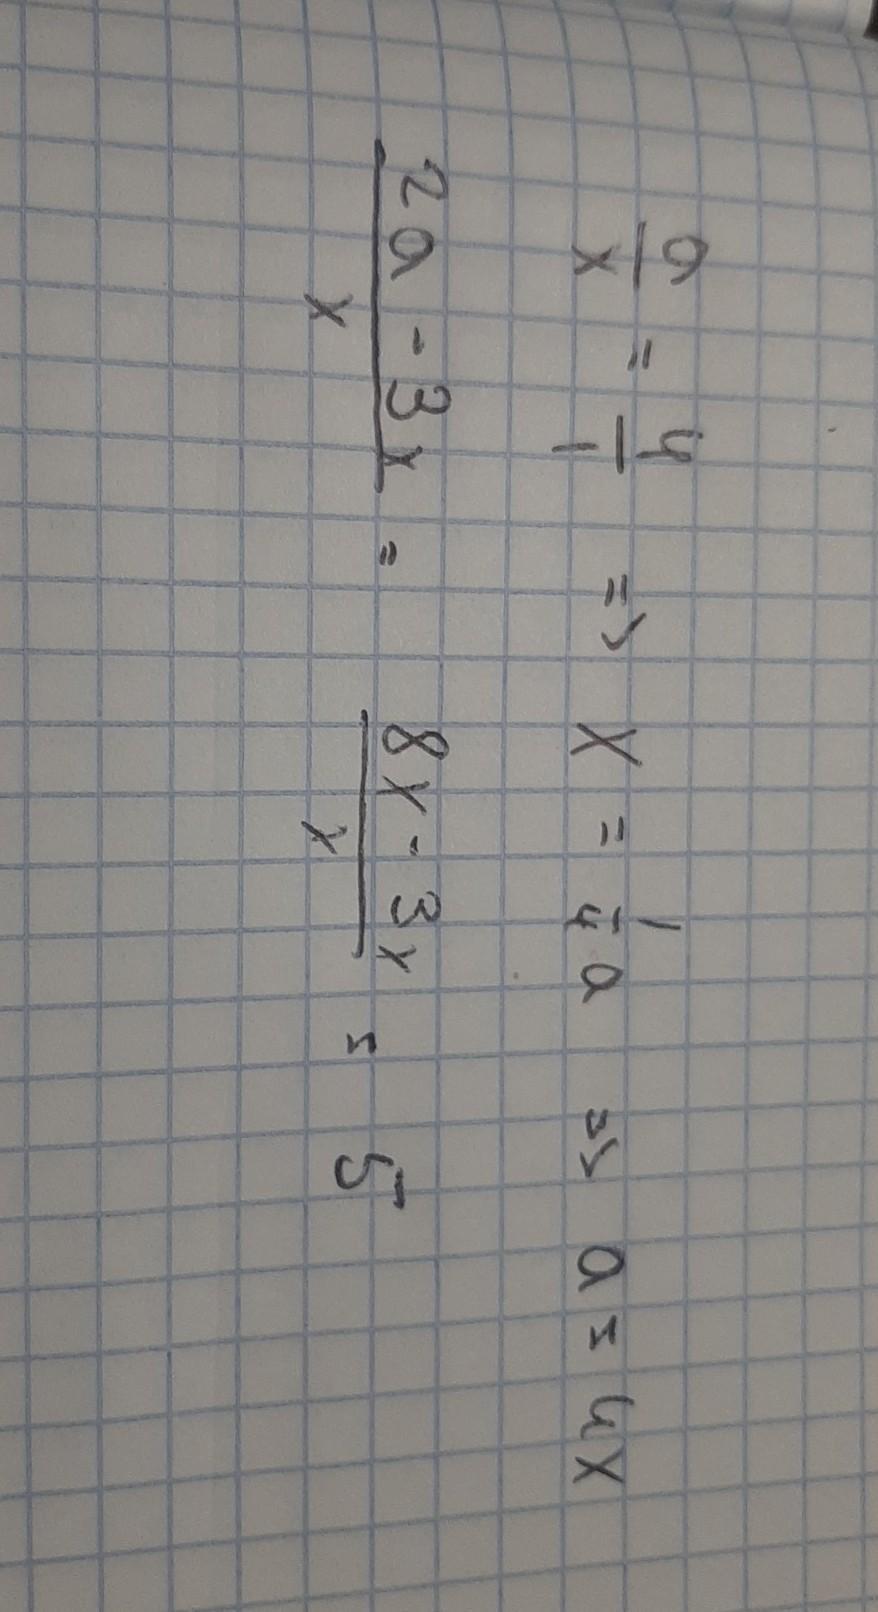 a/x = 4/1 => x = 1/4 a => a = 4x
(2a - 3x)/x = (8x - 3x)/x = 5